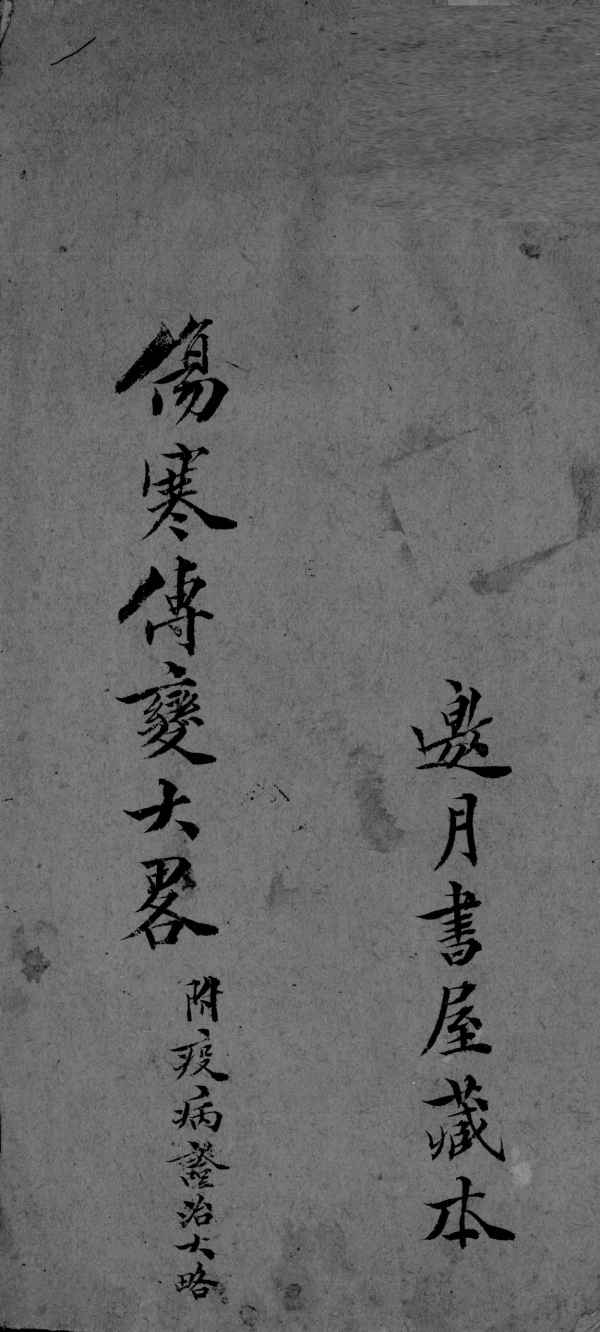 邀月書屋藏本
傷寒傳變大畧
附疫病證治大略